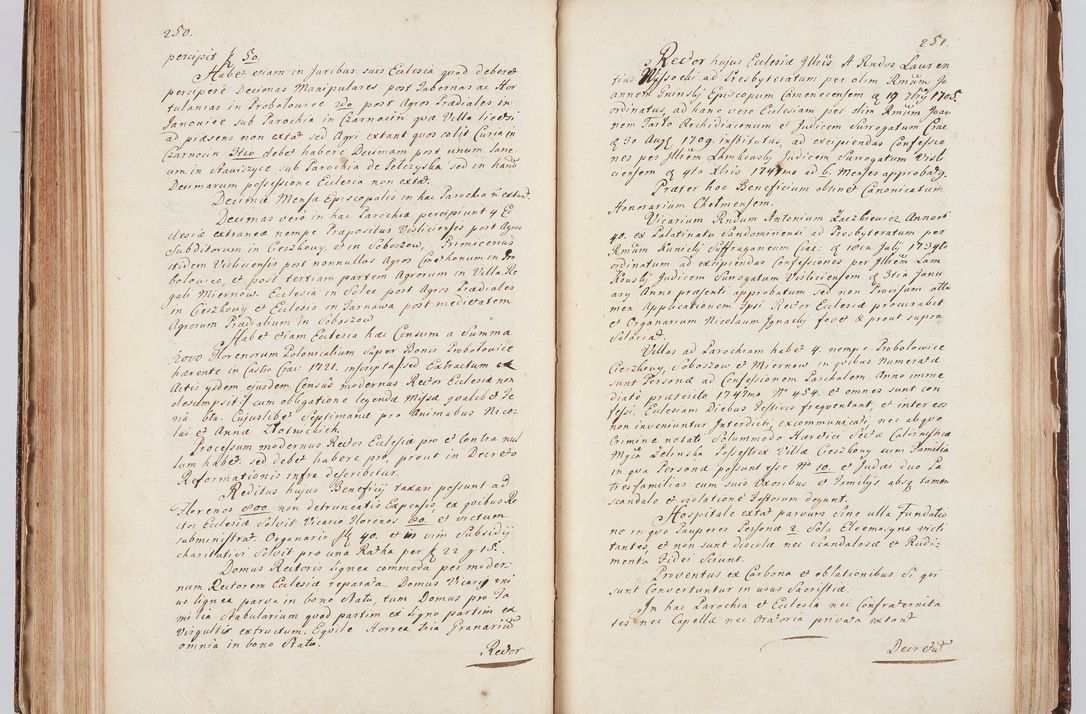 250.
percipit f 50.
Habet etiam in Juribus suis Ecclesia quod deberet
percipere Decimas Manipulares post Tabernas ac Hor
tulanias in Probolowice 2do post Agros Prædiales in
Janowice sub Parochia in Czarnocin quæ Villa licet
ad præsens non extat sed Agri extant quos colit Curia in
Czarnocin 3tio debet habere Decimam post unum Lane
um in Stawiszyce sub Parochia de Pelczyska sed in hanc
Decimarum possessione Ecclesia non extat.
Decimæ Mensæ Episcopalis in hac Parochia n̄ extant.
Decimas vero in hac Parochia percipiunt 4 Ec
clesiæ extraneæ nempe Præpositus Visliciensis post Agros
Subditorum in Cieszkowy, et in Soboszow, Primicerius
itidem Visliciensis post nonnullas Agros Cmethonum in Pro
bolowice, et post tertiam partem Agrorum in Villa Re
gali Miernow. Ecclesia in Solec post Agros Prædiales
in Cieszkowy et Ecclesia in Tarnawa post medietatem
Agrorum Prædialium in Soboszow
Habet etiam Ecclesia hac Censum a Summa
2000 Florenorum Polonicalium Super Bonis Probolowice
hærente in Castro Crac: 1721. inscripta /: sed Extractum ex
Actis ysdem ejusdem Census modernus Rector Ecclesiæ non
desumpsit :/ cum obligatione legendæ Missæ qualibet Fe
riâ 6ta. Cujuslibet Septimanæ pro Animabus Nico
lai et Annæ Złotnickich
Processum modernus Rector Ecclesiæ pro et contra nul
lum habet. sed debet habere pro, prout in Decreto
Reformationis infra describitur.
Reditus hujus Beneficij taxari possunt ad
Florenos 800. non detruncatis Expensis, ex quibus Re
ctor Ecclesiæ Solvit Vicario Florenos 60. et victum
subministrat. Organario f 40. et in vim Subsidij
charitativi Solvit pro una Ratha per f 22 g 15.
Domus Rectoris lignea commoda per moder
num Rectorem Ecclesiæ reparata. Domus Vicarij eni
us lignea parva in bono Statu, tum Domus pro Fa
milia Stabularium quod partim ex Ligno partim ex
Virgultis extructum. Equile Horrea tria Granarium
omnia in bono Statu.
Rector
251.
Rector hujus Ecclesiæ Illtris A Rndus Lauren
tius Wyssocki ad Presbyteratum per olim Rmum Jo
annem Gninsky Episcopum Camenecensem d 19 7bris 1705.
ordinatus, ad hanc vero Ecclesiam per olim Rmum Joan
nem Tarło Archidiaconum et Judicem Surrogatum Crac
d 30 Aug 1709. institutus, ad excipiendas Confessio
nes per Illtrem Lankowsky Judicem Surrogatum Visli
ciensem d 4ta Xbris 1747mo ad 6. Menses approbatg.
Præter hoc Beneficium obtinet Canonicatum
Honorarium Chelmensem.
Vicarium Rndum Antonium Laczkiewicz Annorum
40. ex Palatinatu Sandomiriensi ad Presbyteratum per
Rmum Kunicky Suffraganeum Crac: d 10ca Julij 1734to
ordinatum ad excipiendas Confessiones per Illtrem Lan
Kowsky Judicem Surrogatum Visliciensem d 3tia Janu
ary Anno præsenti approbatum sed non Provisum atta
men Applicationem Ipsi Rector Ecclesiæ procurabit
et Organarium Nicolaum Jgnacky fovet & prout supra
Salariat.
Villas ad Parochiam habet 4. nempe Probolowice
Cieszkowy, Soboszow et Miernow in quibus Numeratæ
sunt Personæ ad Confessionem Paschalem Anno imme
diate præterito 1747mo No 454. et omnes sunt con
fessi. Ecclesiam Diebus Festivis frequentant, et inter eos
non inveniuntur Interdicti, excommunicati, nec aliquo
Crimine notati Solummodo Hæretici Sectæ Calvinisticæ
Mgca Zelinska Possestrix Villæ Cieszkowy cum Familia
in qua Personæ possunt esse No 10. et Judæi duo Pa
tresfamilias cum suis Uxoribus et Familijs absq tamen
scandalo et violatione Festorum degunt.
Hospitale extat parvum sine ulla Fundatio
ne in quo Pauperes Personæ 2. Sola Eleemosyna victi
tantes, et non sunt discolæ nec scandalosæ et Rudi
menta Fidei Sciunt.
Proventus ex Carbona et oblationibus Si qui
sunt Convertuntur in usus Sacristiæ.
In hac Parochia et Ecclesia nec Confraternita
tes nec Capellæ nec Oratoria privata extant
Decretum